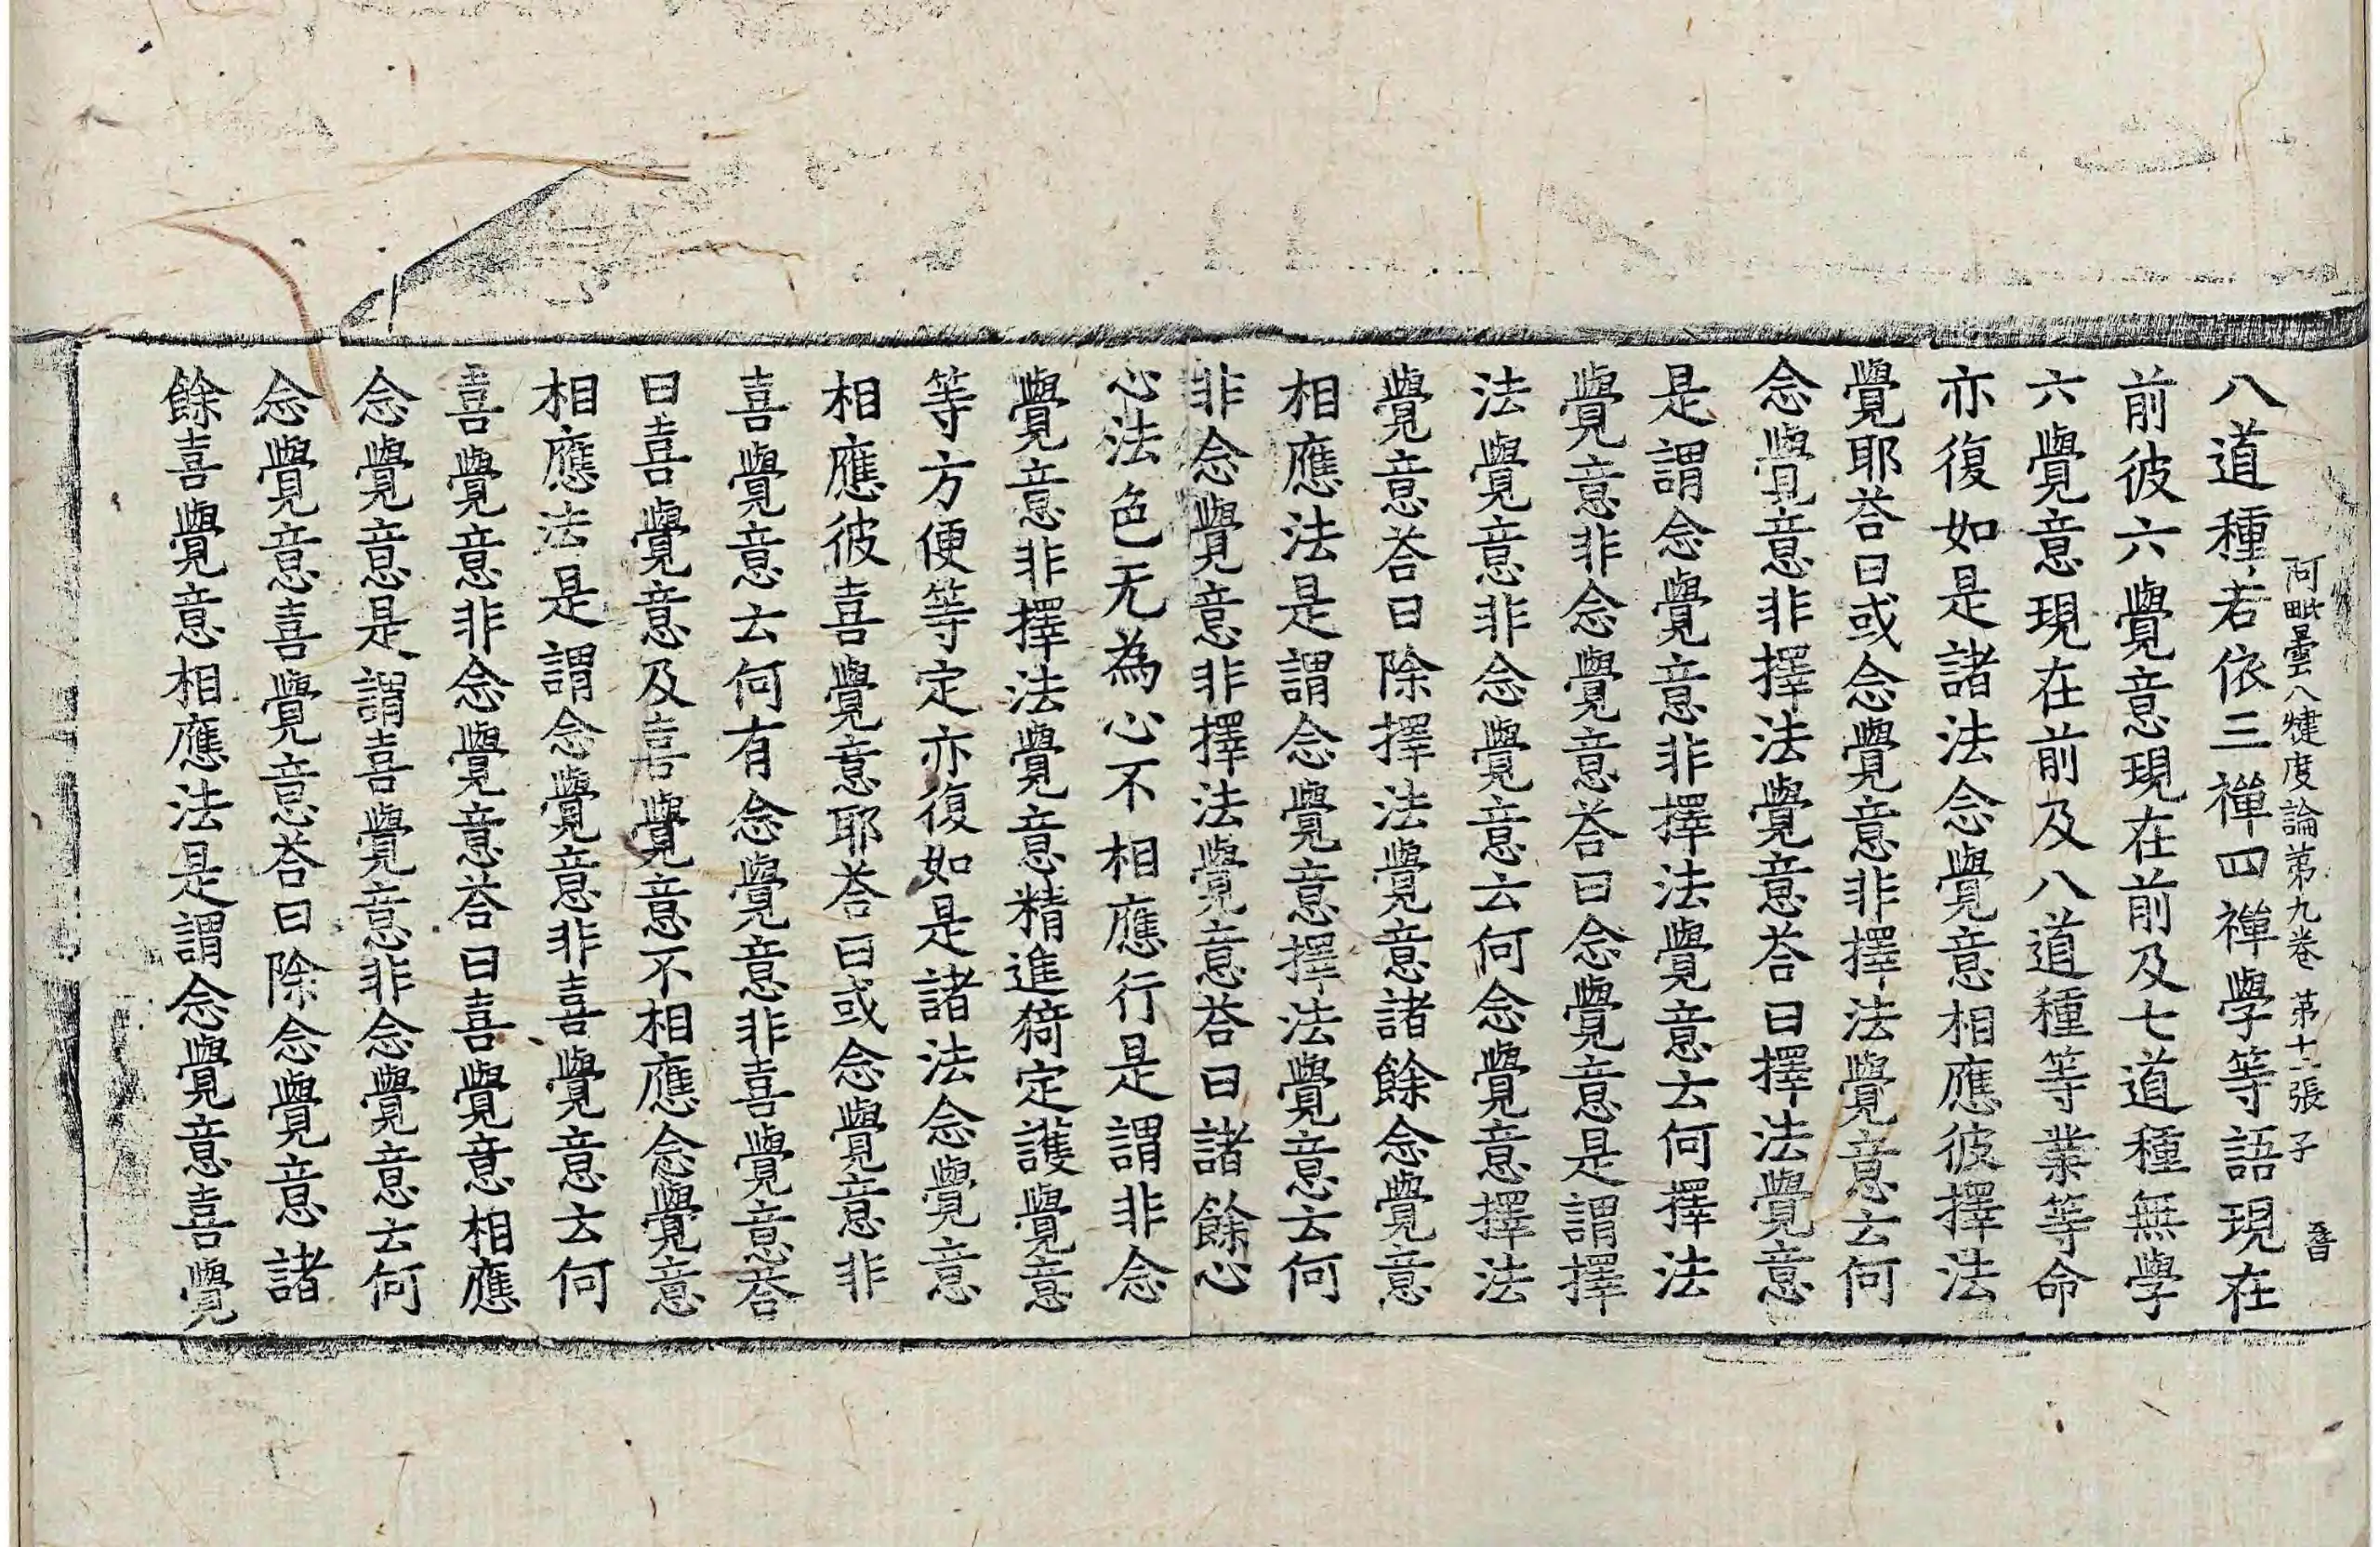 阿毗曇八犍度論第九卷 第十一張 子
八道種若依三禪四禪學等語現在
前彼六覺意現在前及七道種無學
六覺意現在前及八道種等業等命
亦復如是諸法念覺意相應彼擇法
覺耶荅曰或念覺意非擇法覺意云何
念覺意非擇法覺意荅曰擇法覺意
是謂念覺意非擇法覺意云何擇法
覺意非念覺意荅曰念覺意是謂擇
法覺意非念覺意云何念覺意擇法
覺意荅曰除擇法覺意諸餘念覺意
相應法是謂念覺意擇法覺意云何
非念覺意非擇法覺意荅曰諸餘心
心法色无為心不相應行是謂非念
覺意非擇法覺意精進猗定護覺意
等方便等定亦復如是諸法念覺意
相應彼喜覺意耶荅曰或念覺意非
喜覺意云何有念覺意非喜覺意荅
曰喜覺意及喜覺意不相應念覺意
相應法是謂念覺意非喜覺意云何
喜覺意非念覺意荅曰喜覺意相應
念覺意是謂喜覺意非念覺意云何
念覺意喜覺意荅曰除念覺意諸
餘喜覺意相應法是謂念覺意喜覺